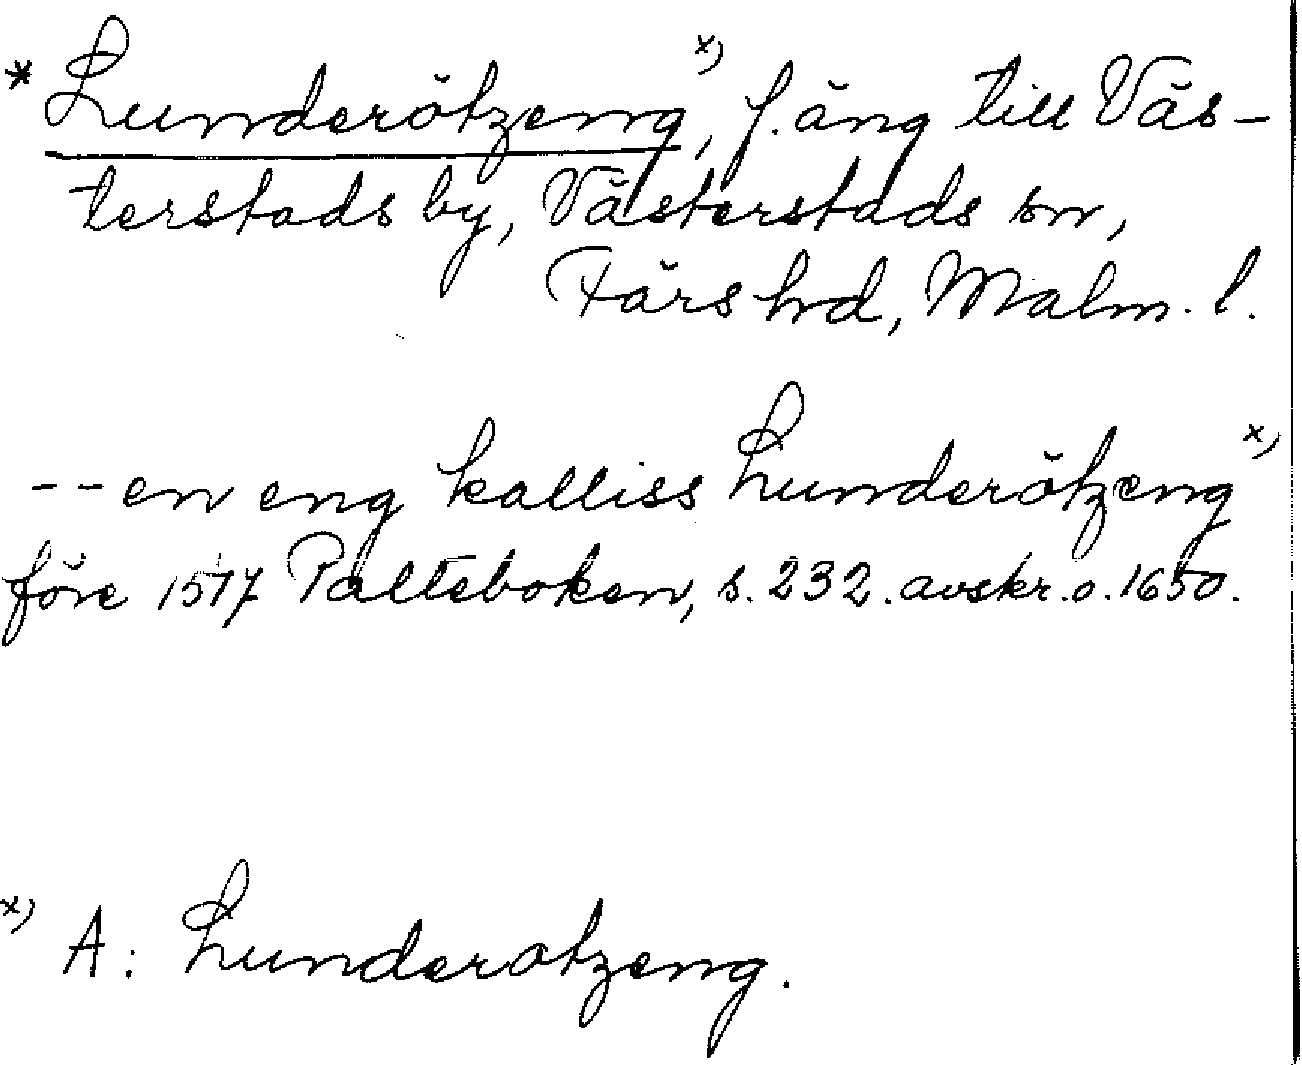 * Lunderötzeng x), f. äng till Väs-
terstads by, Västerstads sn,
Färs hrd, Malm. l.
-- en eng kalliss Lunderötzeng x)
före 1577 Palteboken, s. 232. avskr. o. 1650.
x) A: Lunderotzeng.